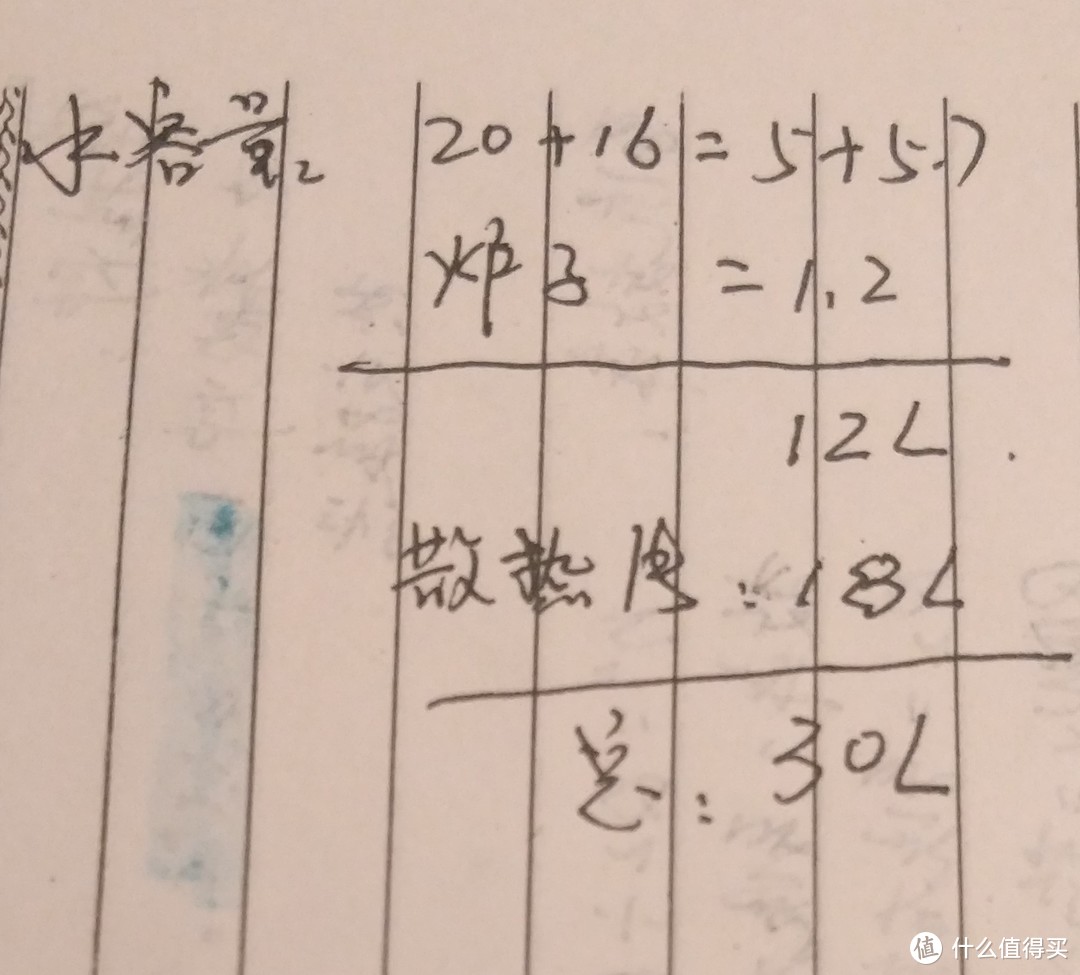 水容量2 20+16=5+5.7
炉子 =1.2
12L.
散热片:18L
总:30L
值 什么值得买